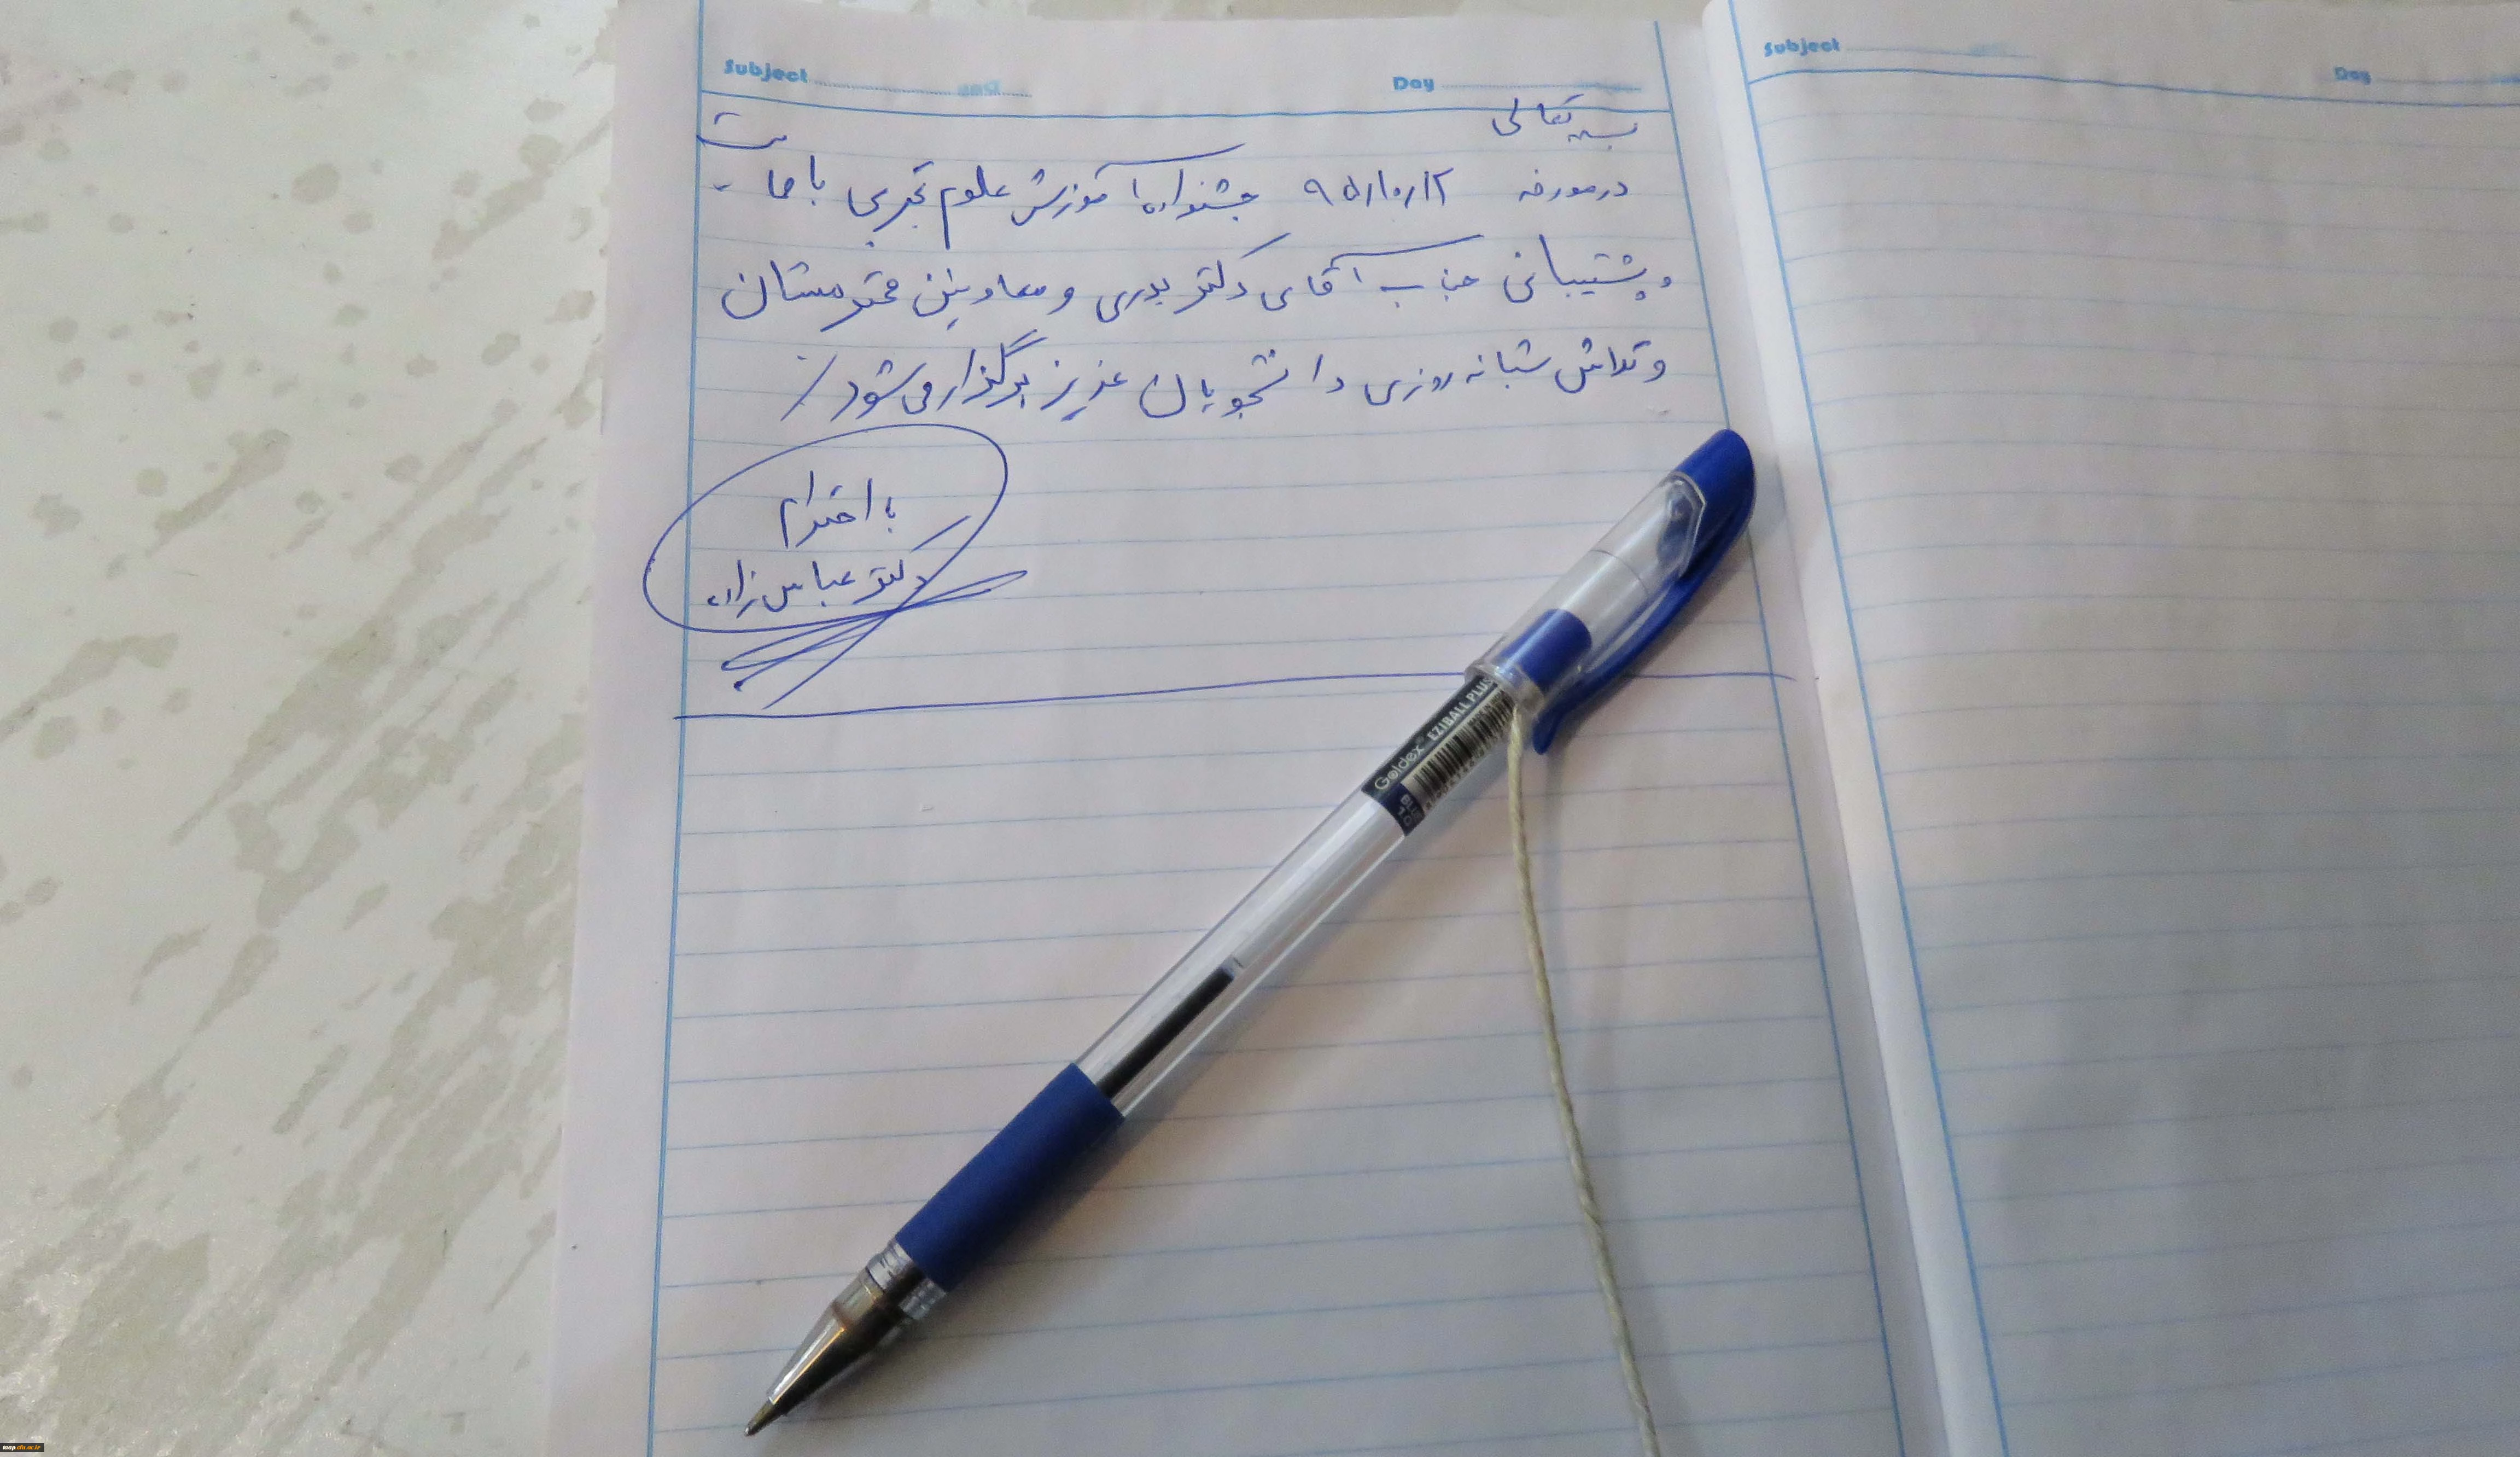 Subject
Day
بسمه تعالی
در مورخه ۹۵/۱۰/۱۲ جشنواره آموزش علوم تجربی با حمایت
و پشتیبانی جناب آقای دکتر بدری و معاونین محترمشان
و تلاش شبانه روزی دانشجویان عزیز برگزار می شود./
با احترام
دکتر عباس زاده
Goldex EZIBALL PLUS
BLUE
1.0
Subject
Day